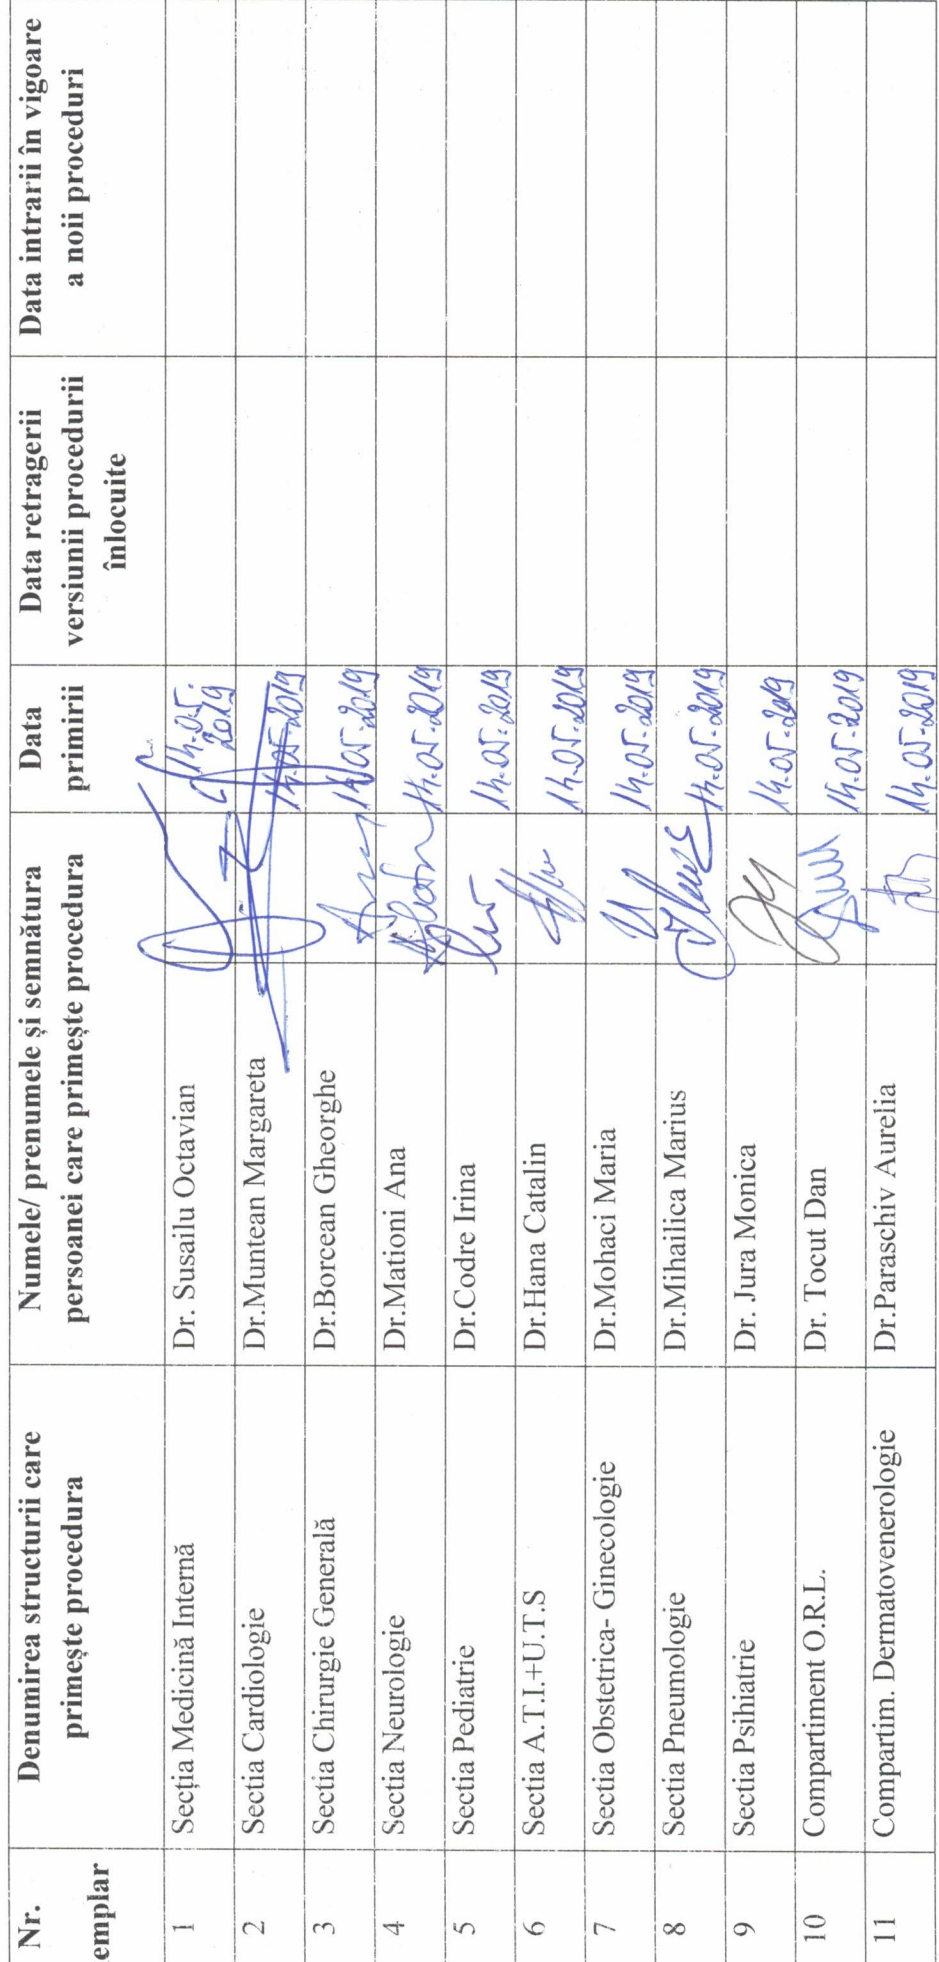 Nr.
emplar
Denumirea structurii care
primește procedura
Numele/ prenumele și semnătura
persoanei care primește procedura
Data
primirii
Data retragerii
versiunii procedurii
înlocuite
Data intrarii în vigoare
a noii proceduri
1 Secția Medicină Internă Dr. Susailu Octavian 14.05.
2019
2 Sectia Cardiologie Dr.Muntean Margareta 14.05.2019
3 Sectia Chirurgie Generală Dr.Borcean Gheorghe 14.05.2019
4 Sectia Neurologie Dr.Mationi Ana 14.05.2019
5 Sectia Pediatrie Dr.Codre Irina 14.05.2019
6 Sectia A.T.I.+U.T.S Dr.Hana Catalin 14.05.2019
7 Sectia Obstetrica- Ginecologie Dr.Mohaci Maria 14.05.2019
8 Sectia Pneumologie Dr.Mihailica Marius 14.05.2019
9 Sectia Psihiatrie Dr. Jura Monica 14.05.2019
10 Compartiment O.R.L. Dr. Tocut Dan 14.05.2019
11 Compartim. Dermatovenerologie Dr.Paraschiv Aurelia 14.05.2019